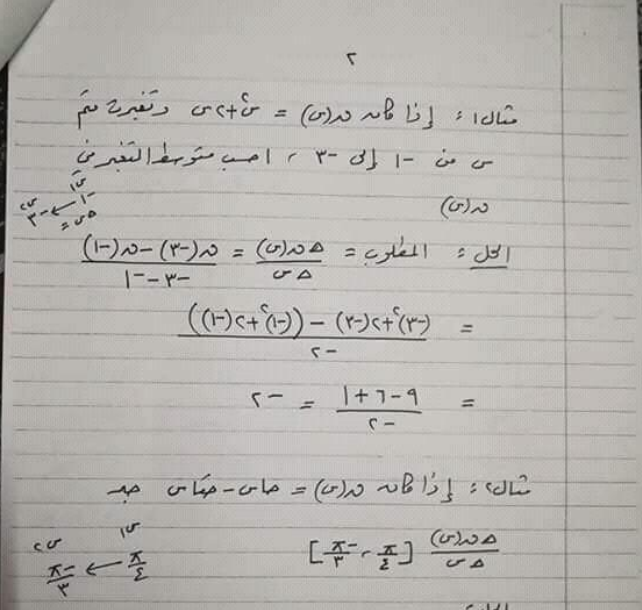 ٢
مثال١: إذا كانه ق(س) = س٢+٢س وتغيرت قيم
س من -١ إلى -٣ ، احسب متوسط التغير في
ق(س)
س١ س٢
-١ ← -٣
Δس =
الحل: المطلوب = Δق(س)/Δس = (ق(-٣) - ق(-١))/(-٣ - -١)
= ((-٣)٢+٢(-٣) - ((-١)٢+٢(-١)))/-٢
= (٩-٦+١)/-٢ = -٢
مثال٢: إذا كانه ق(س) = جاس - جتاس جد
Δق(س)/Δس [π/٤ ، -π/٣]
س١ س٢
π/٤ ← -π/٣